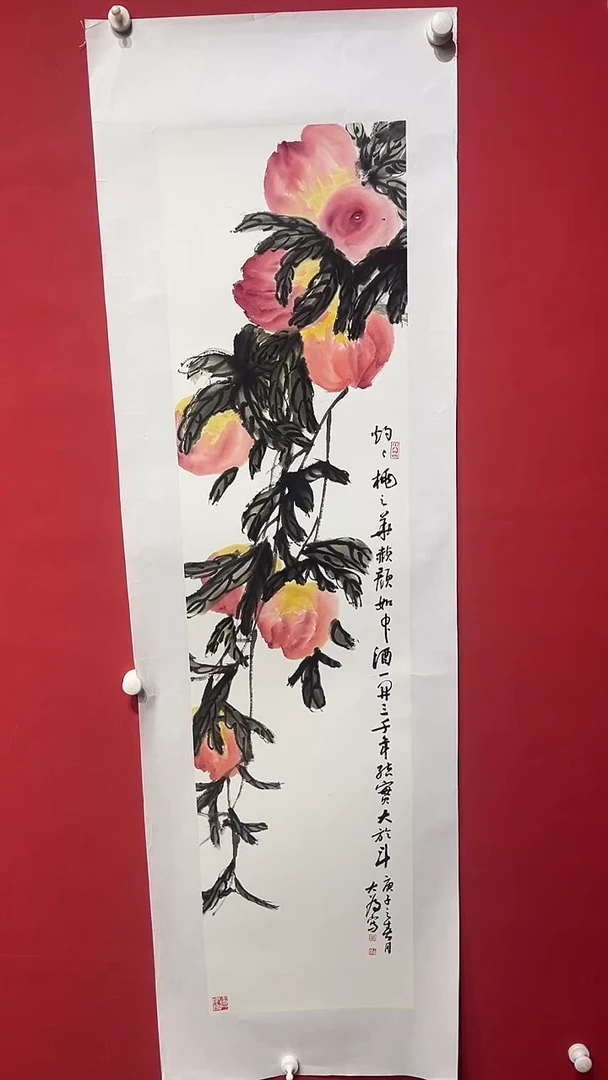 灼々桃之華赪顏如中酒一開三千年結實大於斗
庚子之春月
大為寫